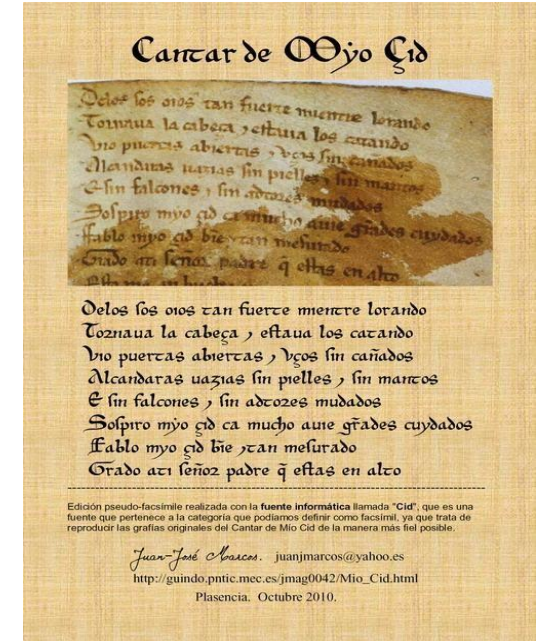 Cantar de Mẏo Çid
Delos sos oios tan fuerte mientre lorando
Tornaua la cabeça ⁊ estaua los catando
Vio puertas abiertas ⁊ vços sin cañados
Alcandaras uazias sin pielles ⁊ sin mantos
E sin falcones ⁊ sin adtores mudados
Sospiro mẏo çid ca mucho auie gr̃ades cuydados
Delos sos oios tan fuerte mientre lorando
Tornaua la cabeça ⁊ estaua los catando
Vio puertas abiertas ⁊ vços sin cañados
Alcandaras uazias sin pielles ⁊ sin mantos
E sin falcones ⁊ sin adtores mudados
Sospiro mẏo çid ca mucho auie gr̃ades cuydados
Fablo myo çid bĩe ⁊tan mesurado
Grado ati señor padre q̃ estas en alto
Fablo myo çid bĩe ⁊tan mesurado
Grado ati señor padre q̃ estas en alto
Edición pseudo-facsímile realizada con la fuente informática llamada "Cid", que es una
fuente que pertenece a la categoría que podíamos definir como facsímil, ya que trata de
reproducir las grafías originales del Cantar de Mio Cid de la manera más fiel posible.
Juan-José Marcos. juanjmarcos@yahoo.es
http://guindo.pntic.mec.es/jmag0042/Mio_Cid.html
Plasencia. Octubre 2010.